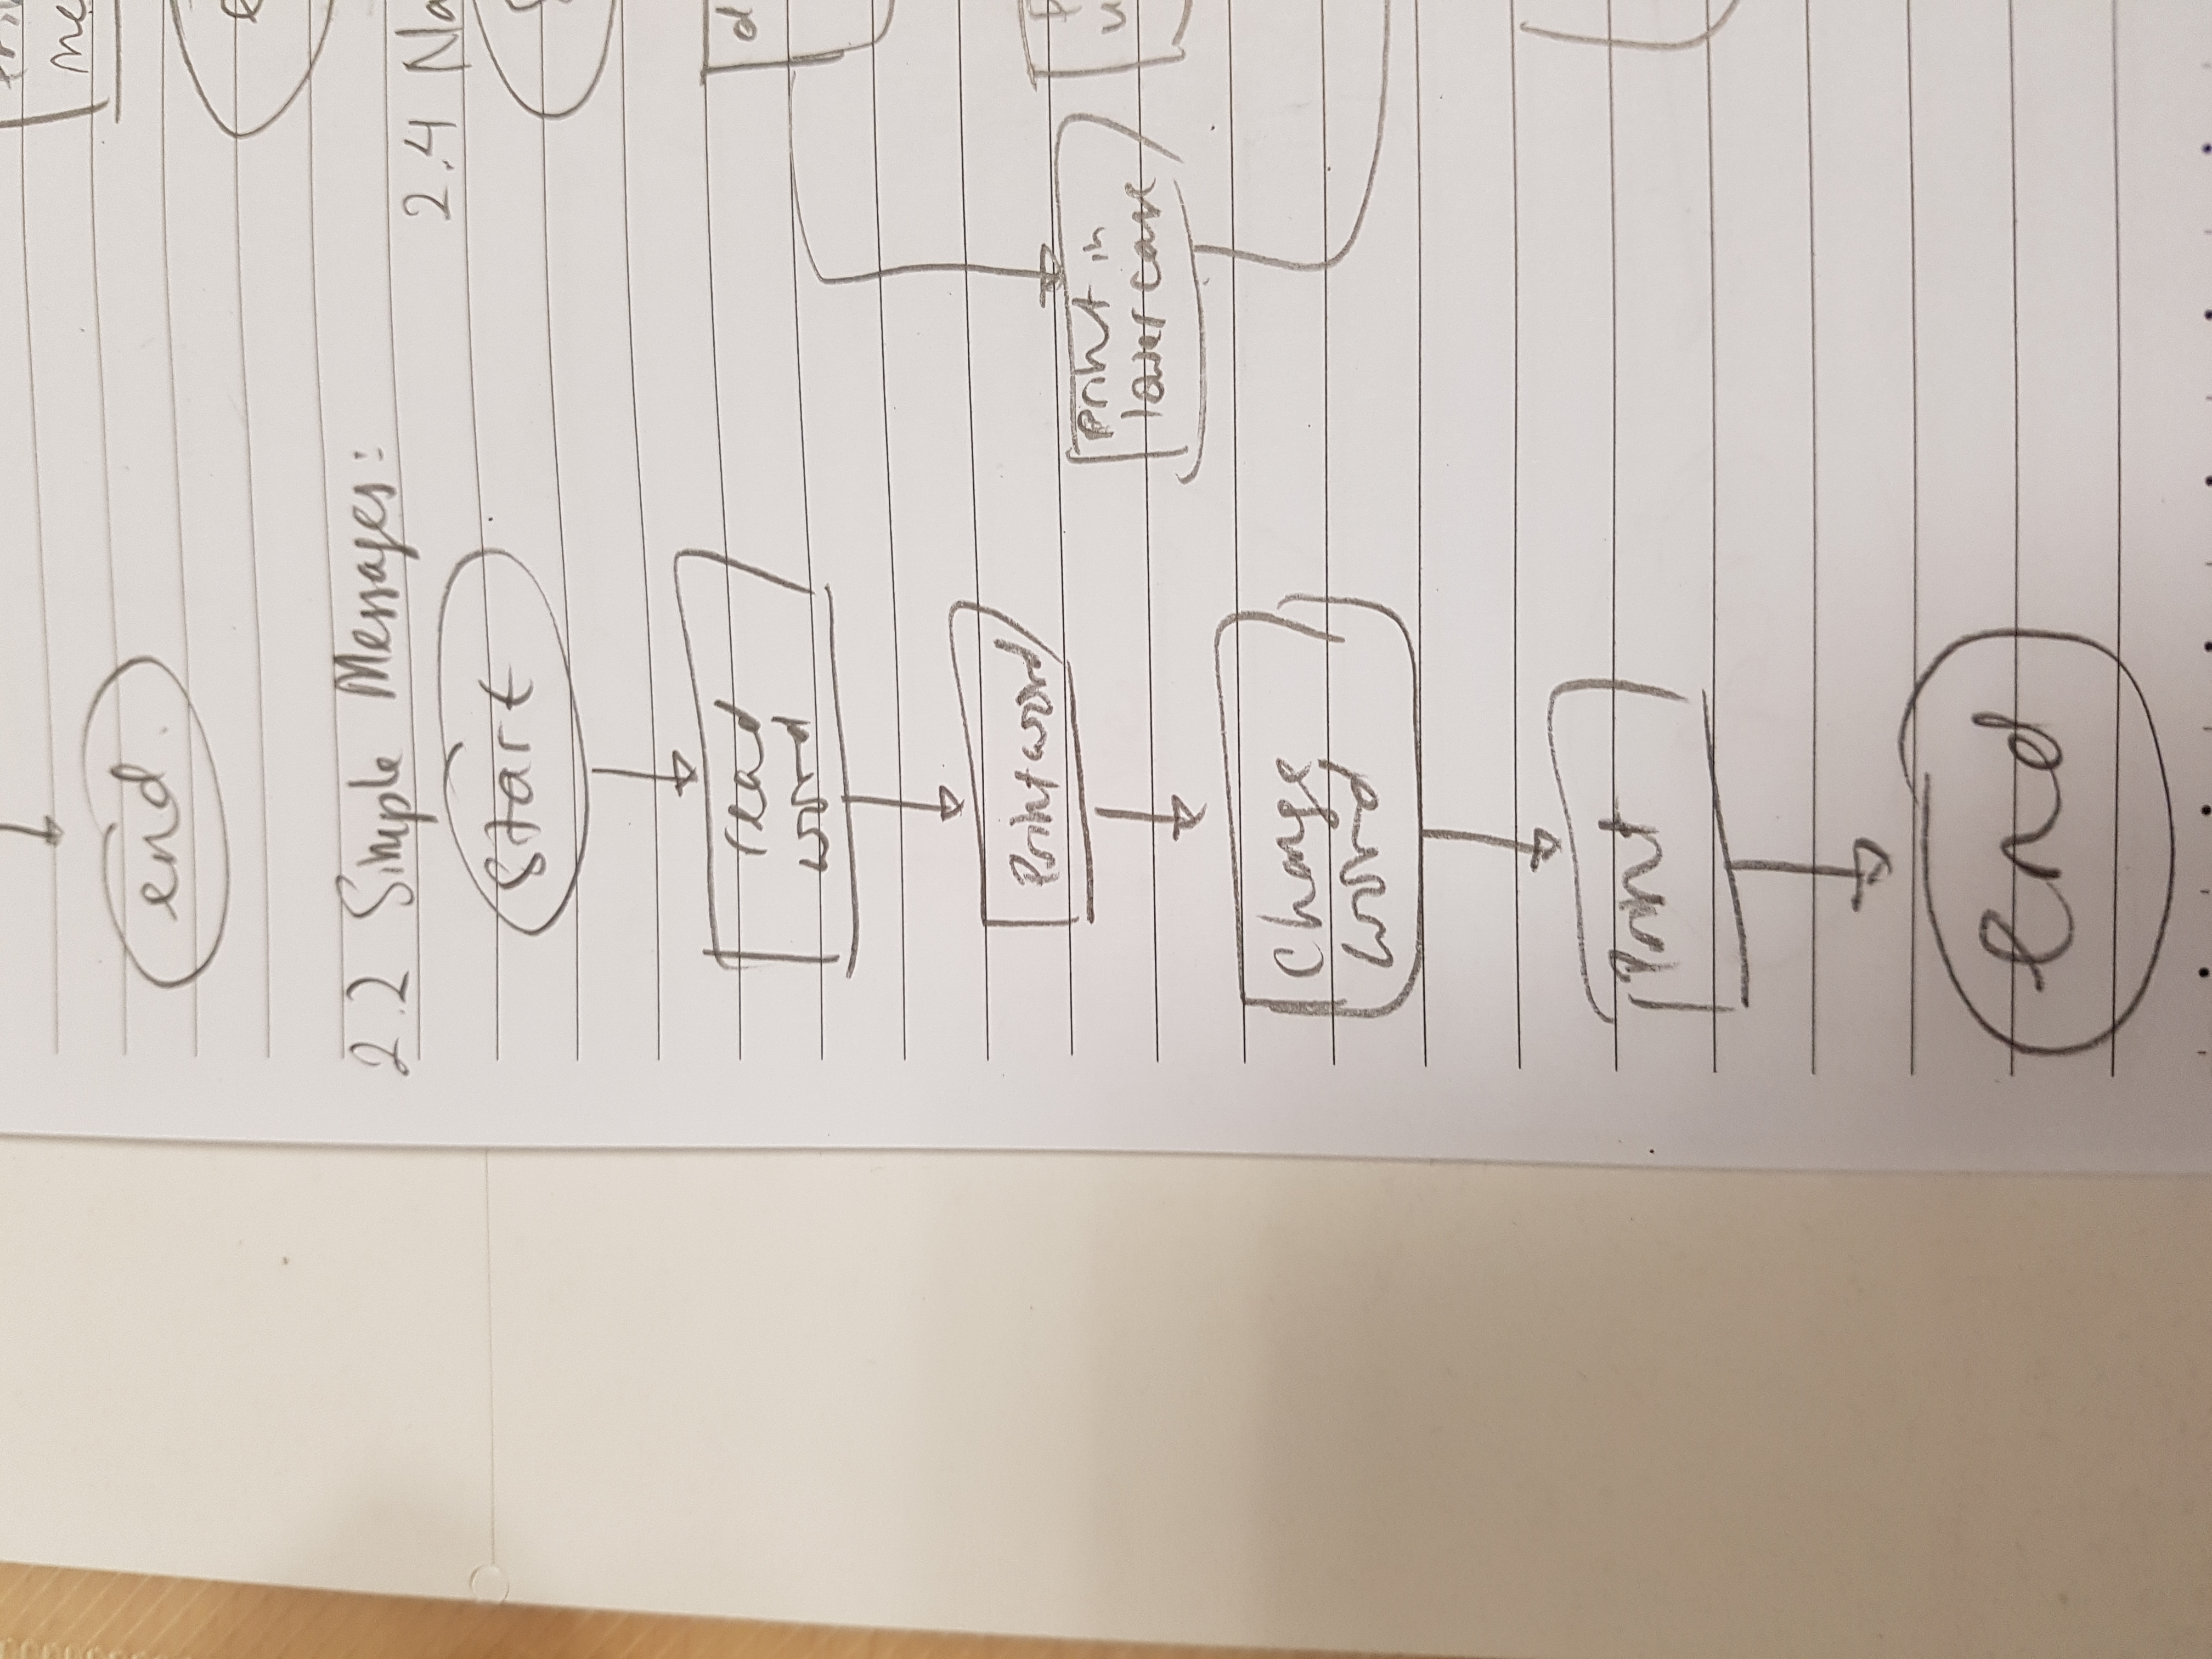 end.
2.2 Simple Messages:
start
read
word
Print word
Change
word
Print
end
me
2.4 Na
d
print in
lower case